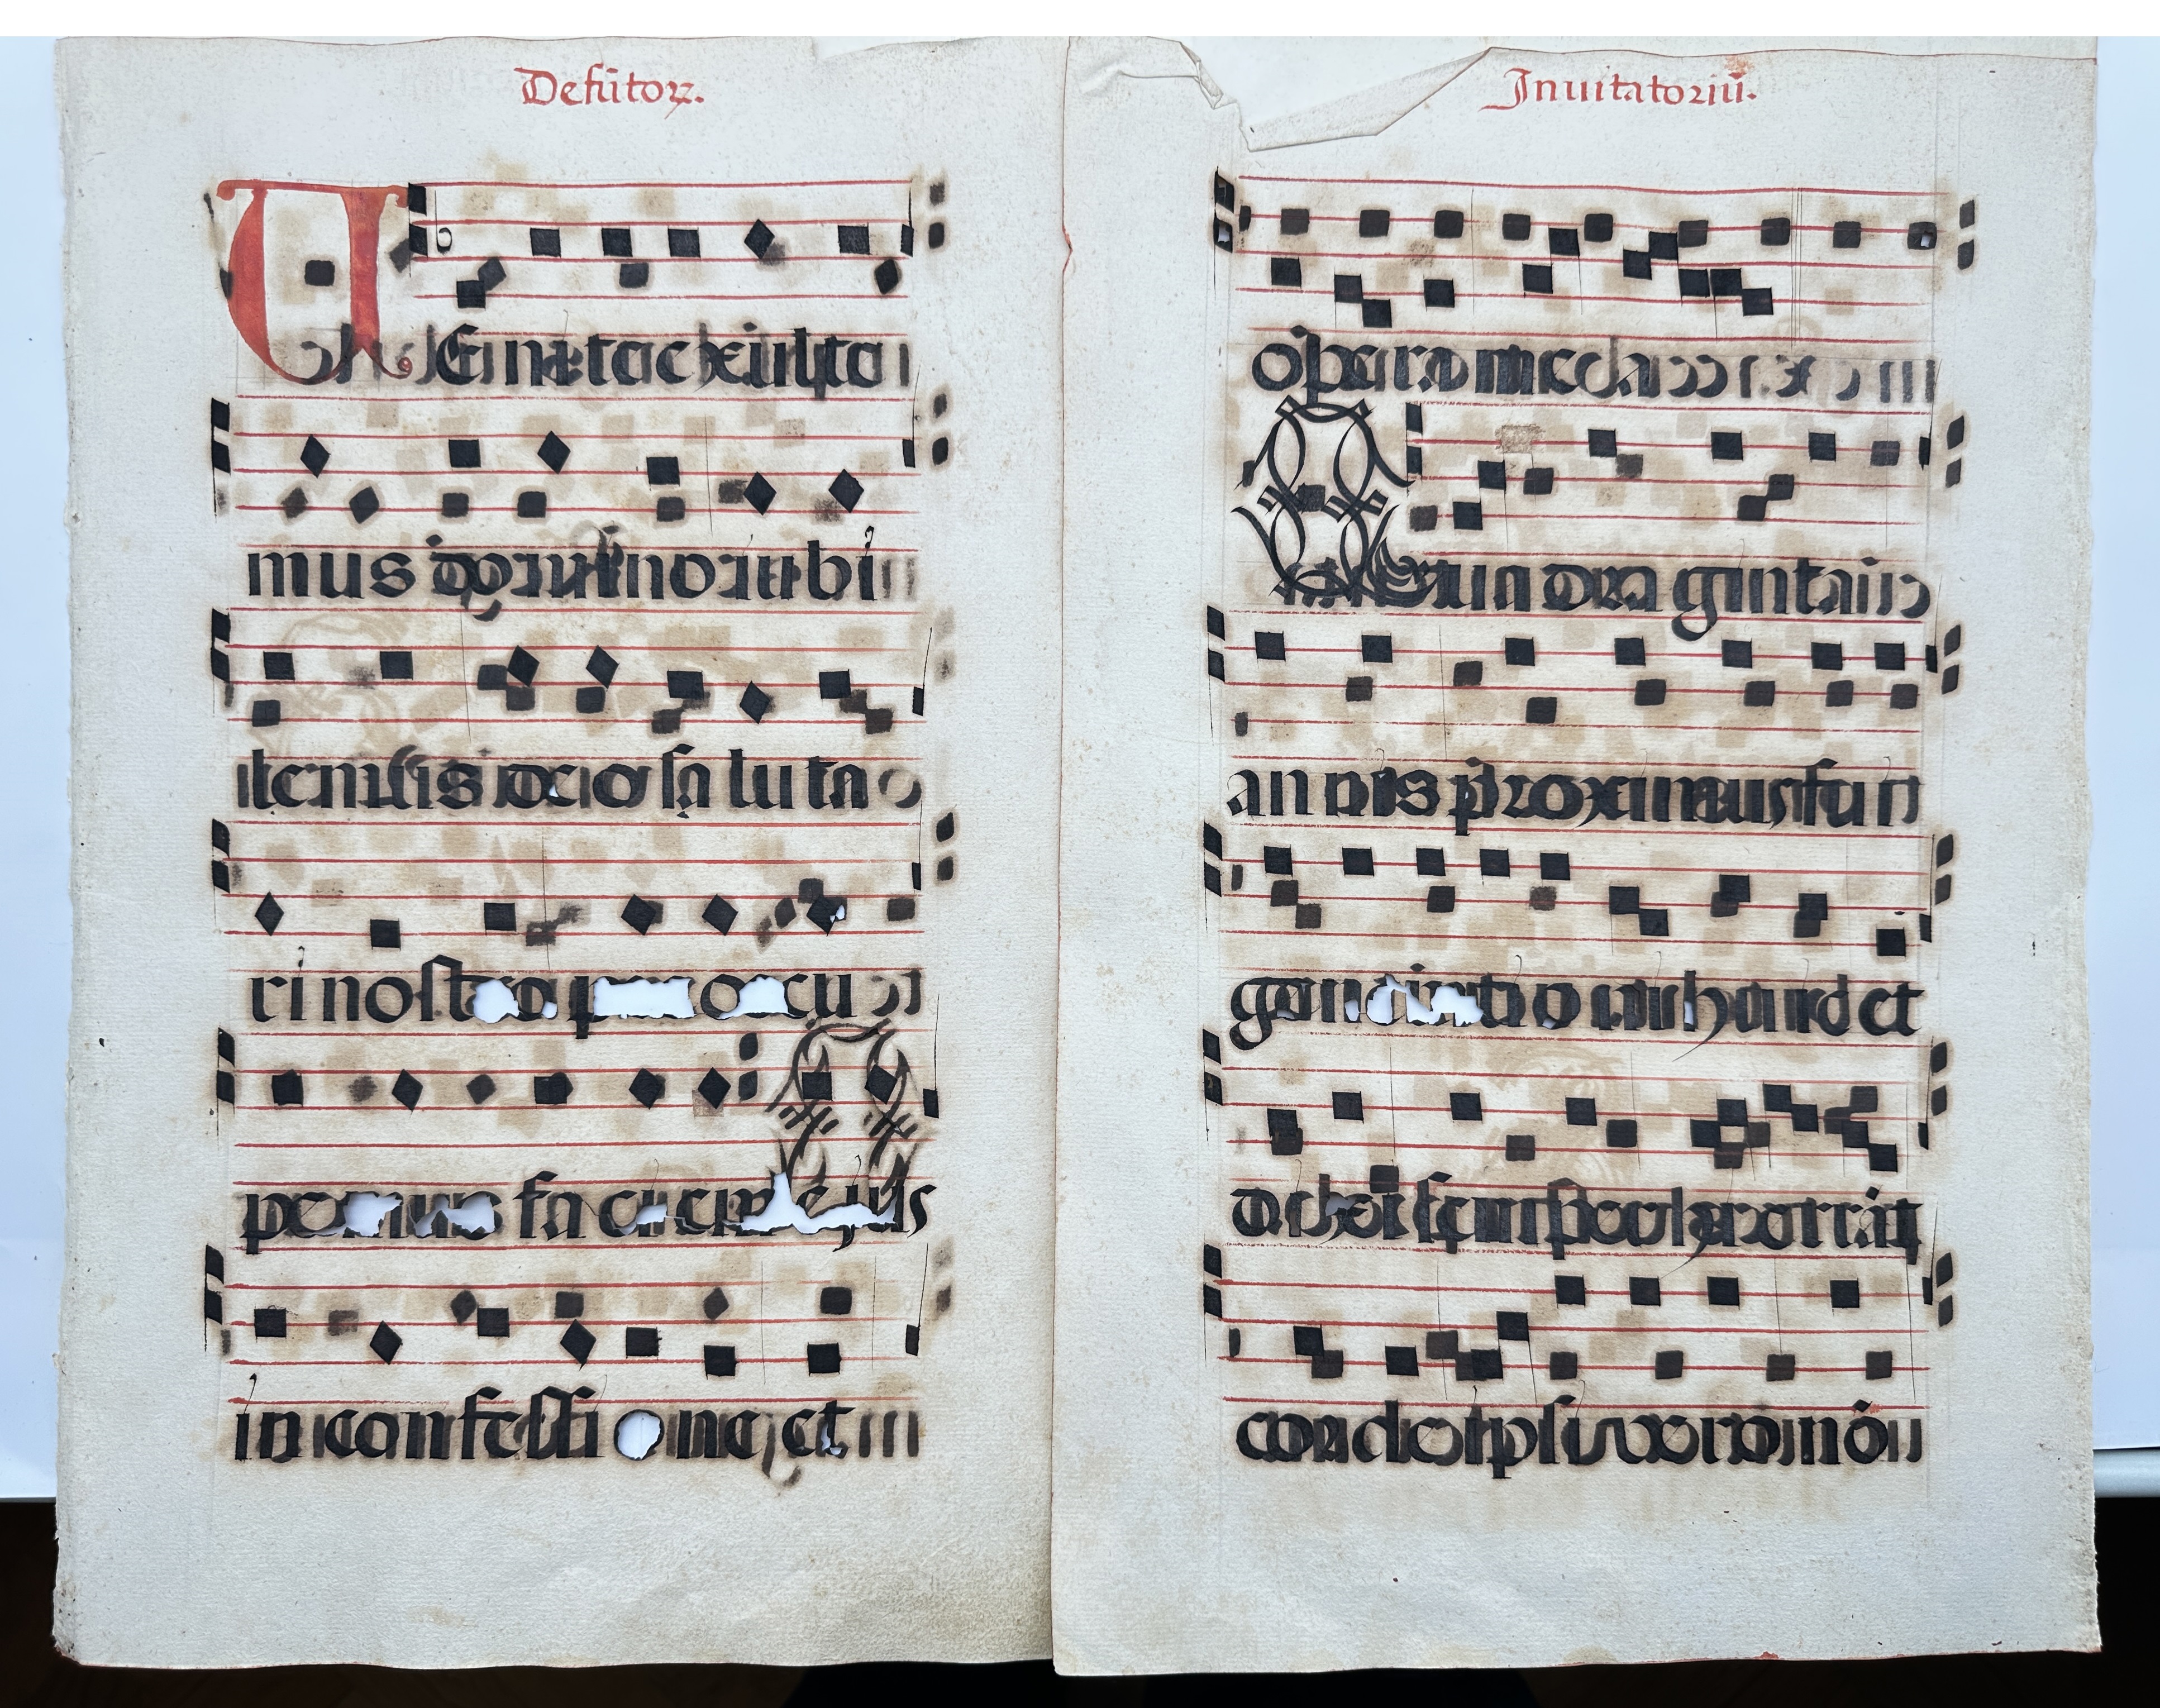 Defūtoꝝ.
VEnite exulte
mus dño iubi
lemus deo saluta
ri nostro preocu
pemus faciem ejus
in confessione, et
Inuitatoriū.
opera mea
Quadraginta
annis proximus fui
generationi huic et
dixi semper hi errāt
corde ipsi vero nō